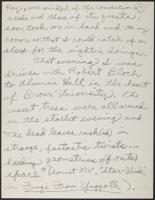 Ray, ever mindful of the condition &
needs and those of his guests,
soon took me in hand and to my
room so that I could catch up on
sleep for the night's doings.
That evening I was
driven with Robert Bloch
to Alumni Hall in the heart
of Brown University. The
russet trees were all around
in the starlit evening and
the dead leaves rush(ed) in
strange, fantastic twists...
heeding geometries of outer
space (Sonnet XIV, "Star-Winds",
in Fungi From Yuggoth).